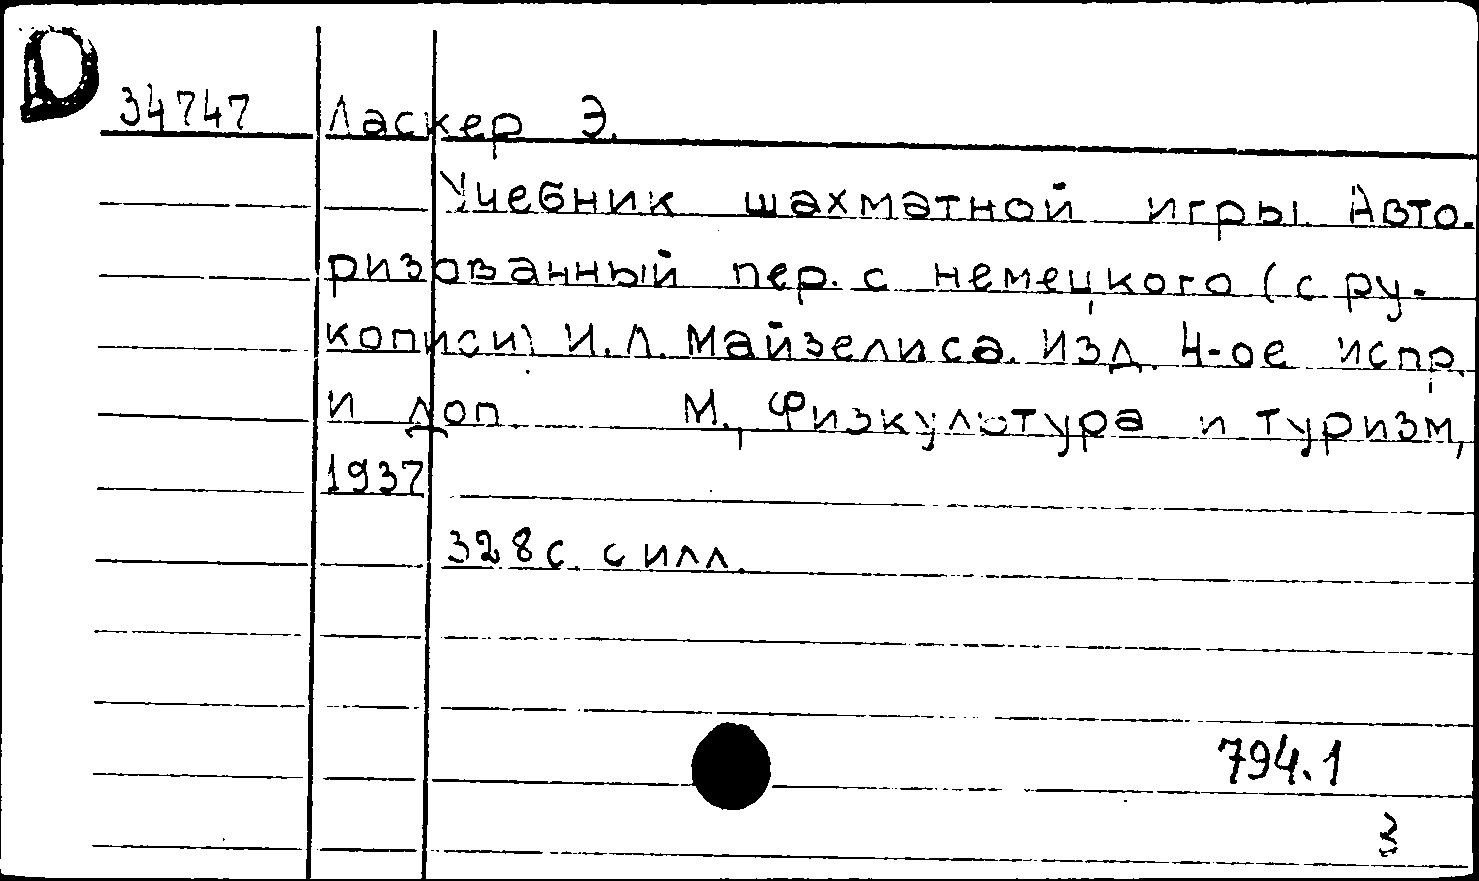 D
34747 Ласкер Э.
Учебник шахматной игры. Авто-
ризованный пер. с немецкого (с ру-
кописи) И.Л. Майзелиса. Изд. 4-ое испр.
и доп. М., Физкультура и туризм,
1937
328 с. с илл.
794.1
3